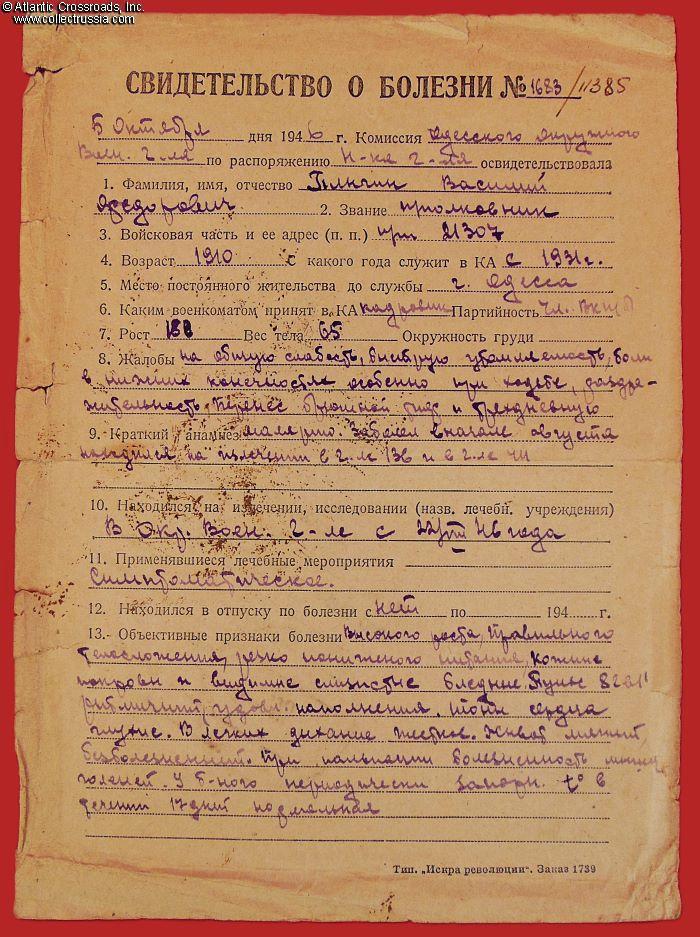 © Atlantic Crossroads, Inc.
www.collectrussia.com
СВИДЕТЕЛЬСТВО О БОЛЕЗНИ № 1683/11385
5 Октября дня 1946 г. Комиссия Одесского Окружного
Воен. г-ля по распоряжению Н-ка г-ля освидетельствовала
1. Фамилия, имя, отчество Василий
Федорович 2. Звание полковник
3. Войсковая часть и ее адрес (п. п.) 21307
4. Возраст 1910 С какого года служит в КА с 1931 г.
5. Место постоянного жительства до службы г. Одесса
6. Каким военкоматом принят в КА кадровик Партийность Чл. ВКП
7. Рост 188 Вес тела 65 Окружность груди
8. Жалобы на общую слабость, быструю утомляемость, боли
в нижних конечностях особенно при ходьбе, раздра-
жительность, перенес брюшной тиф и трехдневную
9. Краткий анамнез малярию. Заболел в начале августа
находился на излечении в г-ле 136 и в г-ле
10. Находился на излечении, исследовании (назв. лечебн. учреждения)
В Окр. Воен. г-ле с 22/VIII 46 года
11. Применявшиеся лечебные мероприятия
Симптоматическое.
12. Находился в отпуску по болезни с нет по 194 г.
13. Объективные признаки болезни Высокого роста, правильного
телосложения, резко пониженого питания, кожные
покровы и видимые слизистые бледные. Пульс 82
ритмичный, удовл. наполнения. Тоны сердца
глухие. В легких дыхание жесткое. Живот мягкий
безболезненный. При пальпации болезненность мышц
голеней. У б-ного периодически запоры. t° в
течении 17 дней нормальная
Тип. „Искра революции". Заказ 1739